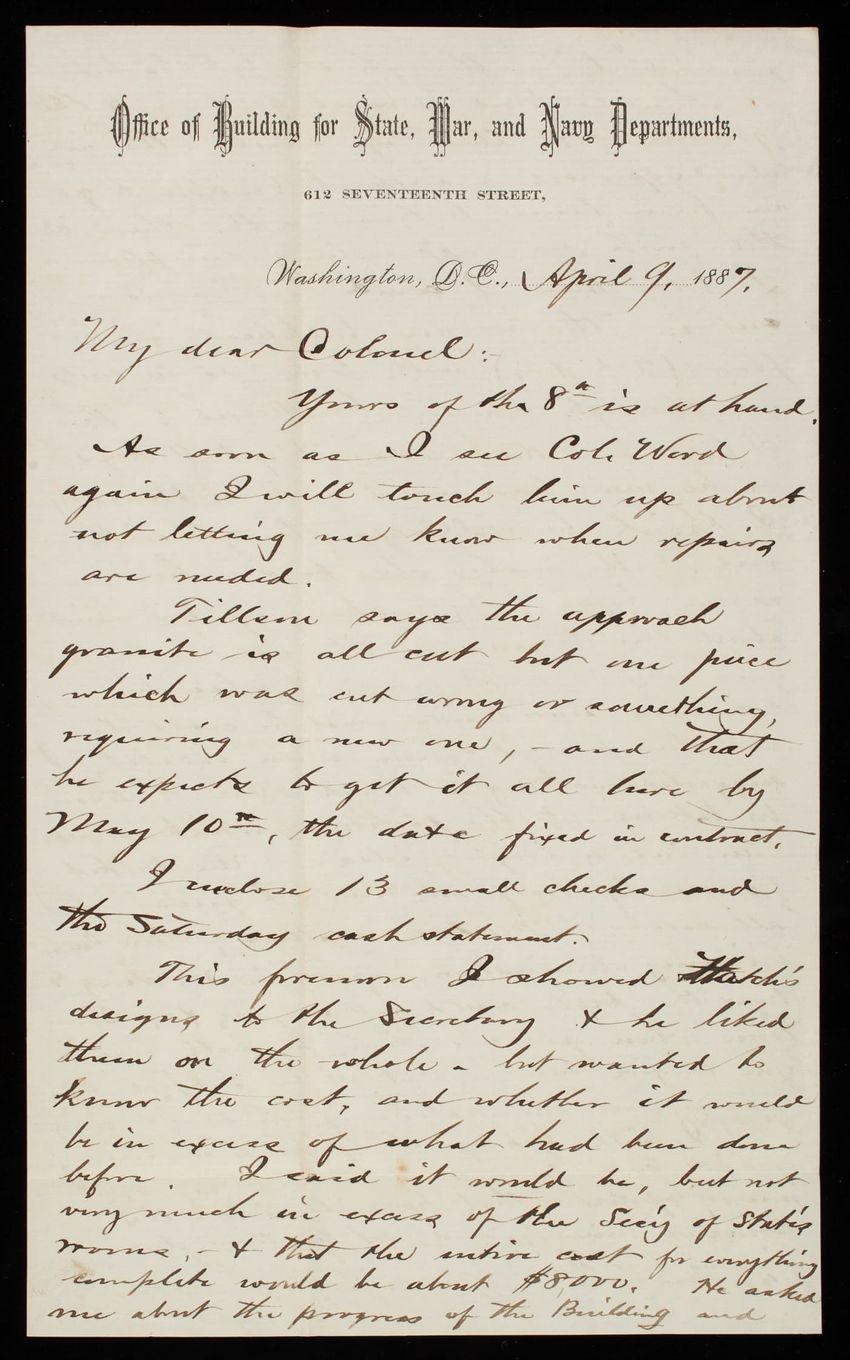 Office of Building for State, War, and Navy Departments,
612 SEVENTEENTH STREET,
Washington, D.C., April 9, 1887.
My dear Colonel:-
Yours of the 8th is at hand.
As soon as I see Col. Word
again I will touch him up about
not letting me know when repairs
are needed.
Tillson says the approach
granite is all cut but one piece
which was cut wrong or something,
requiring a new one, - and that
he expects to get it all here by
May 10th, the date fixed in contract.
I enclose 13 small checks and
the Saturday cash statement.
This forenoon I showed
designs to the Secretary & he liked
them on the whole - but wanted to
know the cost, and whether it would
be in excess of what had been done
before. I said it would be, but not
very much in excess of the Sec'y of State's
rooms, - & that the entire cost for everything
complete would be about $8,000. He asked
me about the progress of the Building and